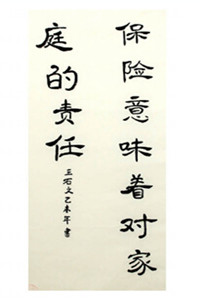 保险意味着对家
庭的责任
玉石文乙未年書